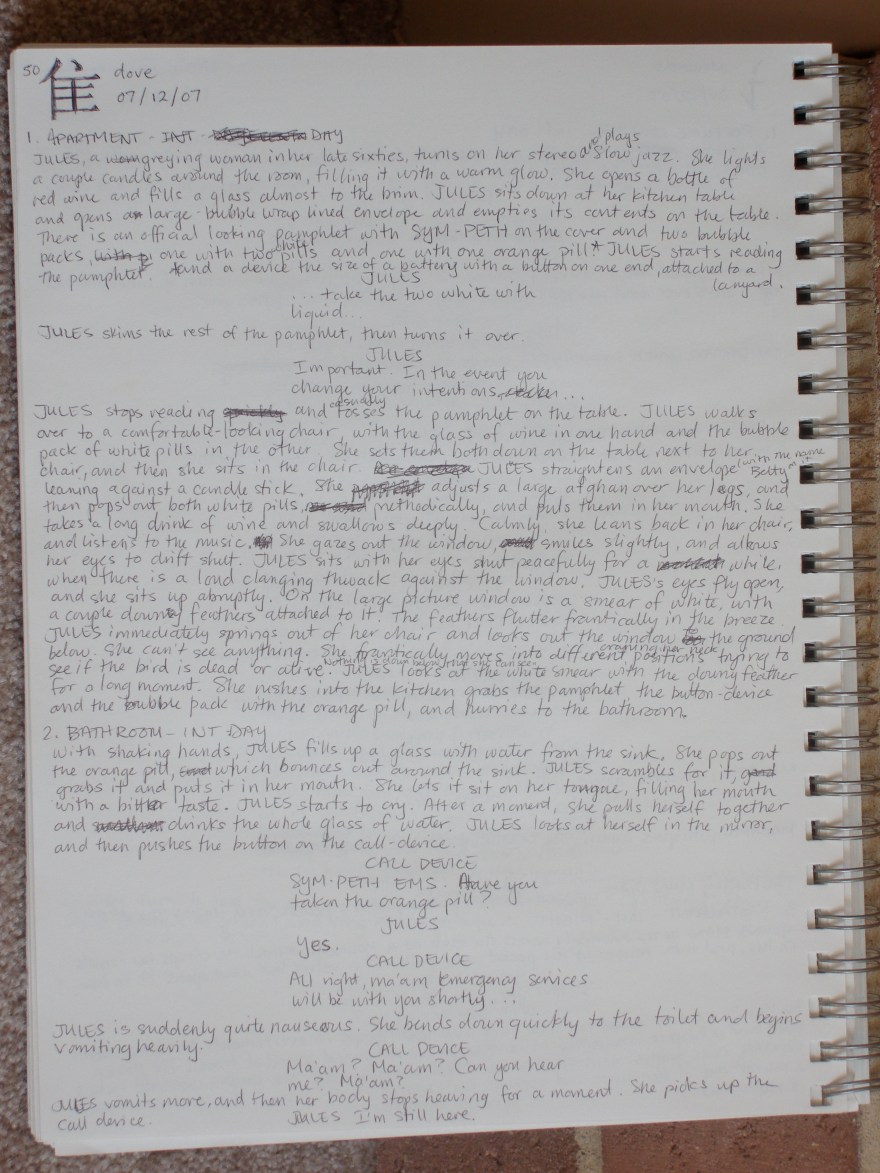 50 隹 dove
07/12/07
1. APARTMENT - INT DAY
JULES, a greying woman in her late sixties, turns on her stereo and plays slow jazz. She lights
a couple candles around the room, filling it with a warm glow. She opens a bottle of
red wine and fills a glass almost to the brim. JULES sits down at her kitchen table
and opens a large bubble wrap lined envelope and empties its contents on the table.
There is an official looking pamphlet with SYM-PETH on the cover and two bubble
packs, one with two white pills and one with one orange pill.* JULES starts reading
the pamphlet. *and a device the size of a battery with a button on one end, attached to a
lanyard.
JULES
...take the two white with
liquid...
JULES skims the rest of the pamphlet, then turns it over.
JULES
Important. In the event you
change your intentions, ...
JULES stops reading and casually tosses the pamphlet on the table. JULES walks
over to a comfortable-looking chair, with the glass of wine in one hand and the bubble
pack of white pills in the other. She sets them both down on the table next to her
chair, and then she sits in the chair. JULES straightens an envelope (with the name
Betty on it)
leaning against a candle stick. She adjusts a large afghan over her legs, and
then pops out both white pills, methodically, and puts them in her mouth. She
takes a long drink of wine and swallows deeply. Calmly, she leans back in her chair,
and listens to the music. She gazes out the window, smiles slightly, and allows
her eyes to drift shut. JULES sits with her eyes shut peacefully for a while,
when there is a loud clanging thwack against the window. JULES's eyes fly open,
and she sits up abruptly. On the large picture window is a smear of white, with
a couple downy feathers attached to it. The feathers flutter frantically in the breeze.
JULES immediately springs out of her chair and looks out the window to the ground
below. She can't see anything. She frantically moves into different positions craning her neck trying to
see if the bird is dead or alive. Nothing is down below that she can see. JULES looks at the white smear with the downy feather
for a long moment. She rushes into the kitchen grabs the pamphlet, the button-device
and the bubble pack with the orange pill, and hurries to the bathroom.
2. BATHROOM - INT DAY
With shaking hands, JULES fills up a glass with water from the sink. She pops out
the orange pill, which bounces out around the sink. JULES scrambles for it,
grabs it and puts it in her mouth. She lets it sit on her tongue, filling her mouth
with a bitter taste. JULES starts to cry. After a moment, she pulls herself together
and drinks the whole glass of water. JULES looks at herself in the mirror,
and then pushes the button on the call-device.
CALL DEVICE
SYM-PETH EMS. Have you
taken the orange pill?
JULES
Yes.
CALL DEVICE
All right, ma'am Emergency services
will be with you shortly...
JULES is suddenly quite nauseous. She bends down quickly to the toilet and begins
vomiting heavily.
CALL DEVICE
Ma'am? Ma'am? Can you hear
me? Ma'am?
JULES vomits more, and then her body stops heaving for a moment. She picks up the
call device.
JULES I'm still here.